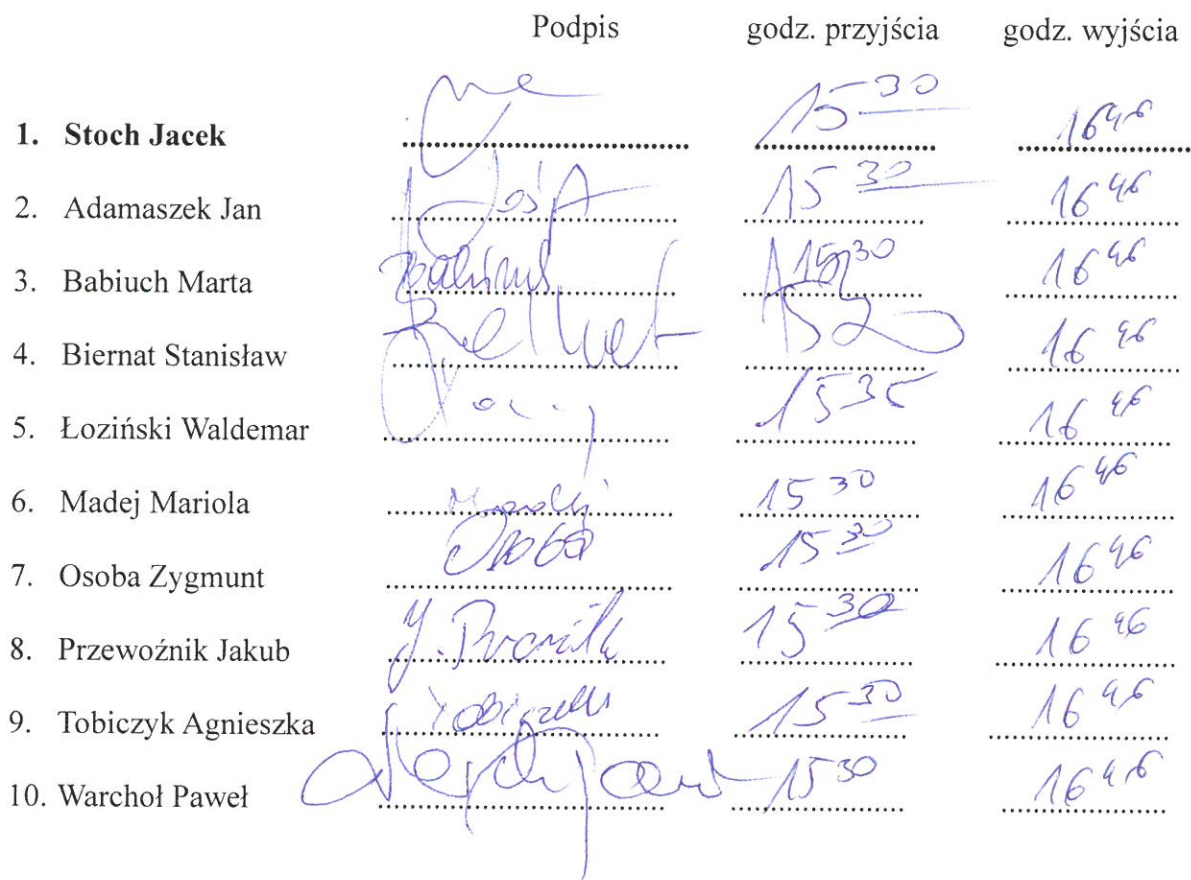 Podpis godz. przyjścia godz. wyjścia
1. Stoch Jacek 15 30 16 46
2. Adamaszek Jan 15 30 16 46
3. Babiuch Marta 15 30 16 46
4. Biernat Stanisław 16 46
5. Łoziński Waldemar 15 35 16 46
6. Madej Mariola 15 30 16 46
7. Osoba Zygmunt Osoba 15 30 16 46
8. Przewoźnik Jakub 15 30 16 46
9. Tobiczyk Agnieszka 15 30 16 46
10. Warchoł Paweł 15 30 16 46